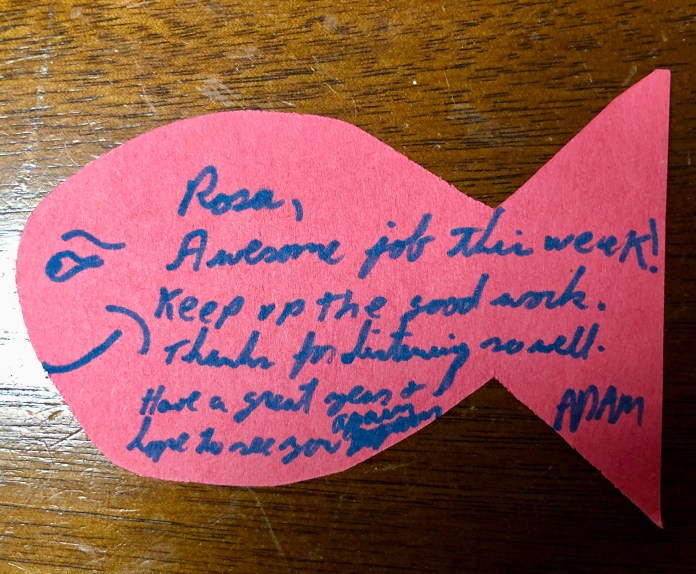 Rosa,
Awesome job this week!
Keep up the good work.
Thanks for listening so well.
Have a great year &
hope to see you again
ADAM